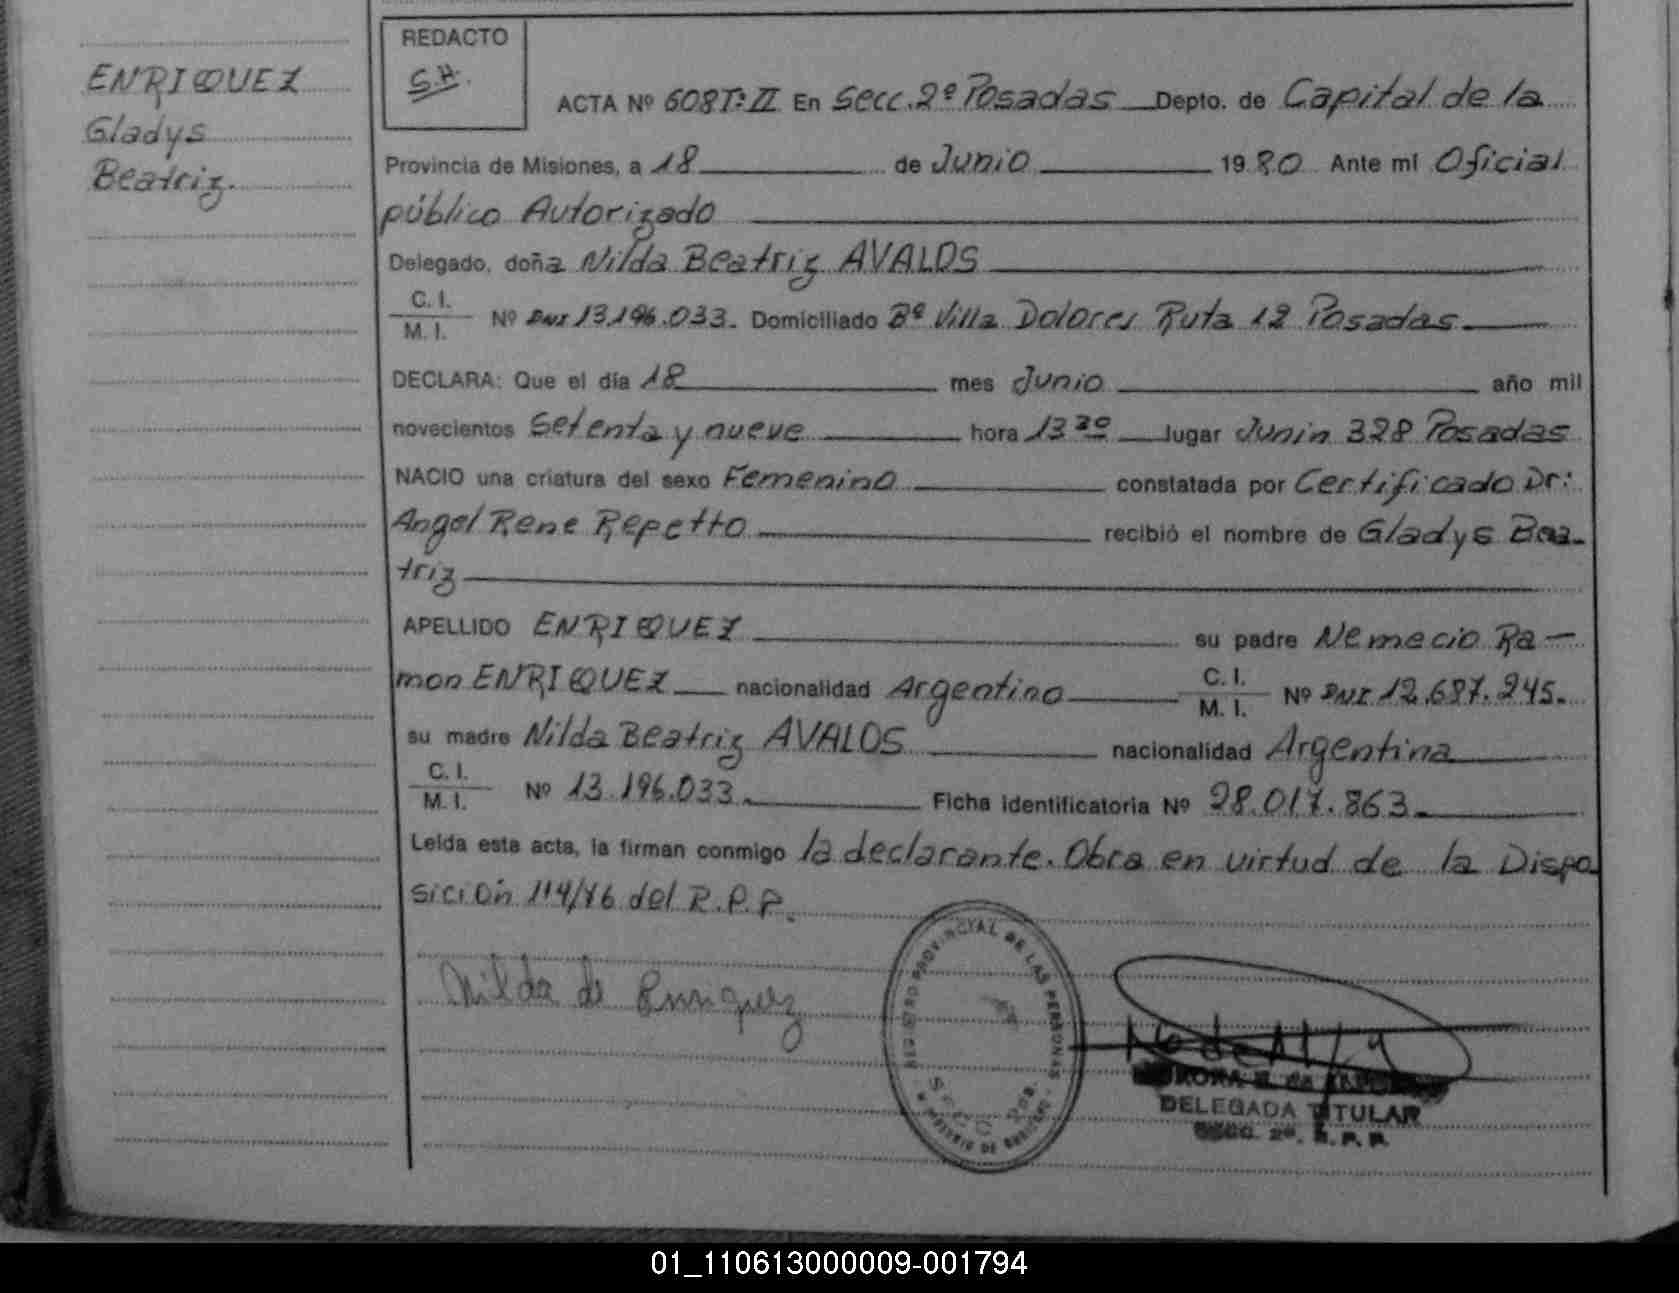 ENRIQUEZ
Gladys
Beatriz.
REDACTO
S.H.
ACTA Nº 608T:II En Secc. 2º Posadas Depto. de Capital de la
Provincia de Misiones, a 18 de Junio 1980 Ante mi Oficial
público Autorizado
Delegado, doña Nilda Beatriz AVALOS
C. I.
M. I.
Nº DNI 13.196.033. Domiciliado Bº Villa Dolores Ruta 12 Posadas.
DECLARA: Que el día 18 mes Junio año mil
novecientos setenta y nueve hora 13 30 lugar Junin 328 Posadas
NACIO una criatura del sexo Femenino constatada por Certificado Dr:
Angel Rene Repetto recibió el nombre de Gladys Bea-
triz
APELLIDO ENRIQUEZ su padre Nemecio Ra-
mon ENRIQUEZ nacionalidad Argentino C. I.
M. I.
Nº DNI 12.687.245.
su madre Nilda Beatriz AVALOS nacionalidad Argentina
C. I.
M. I.
Nº 13.196.033. Ficha identificatoria Nº 28.017.863.
Leída esta acta, la firman conmigo la declarante. Obra en virtud de la Dispo
sición 114/76 del R.P.P.
Nilda de Enriquez
REGISTRO PROVINCIAL DE LAS PERSONAS
DELEGADA TITULAR
SECC. 2ª. R. P. P.
01_110613000009-001794